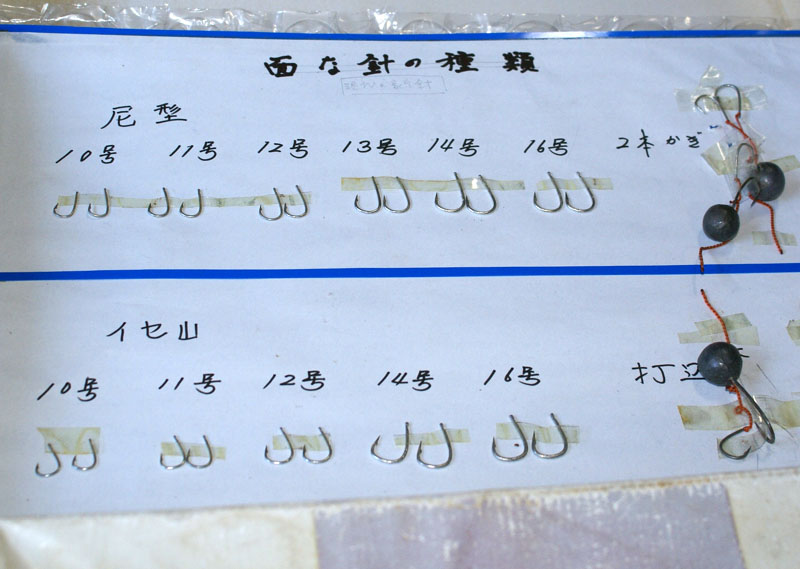 面な針の種類
尼型
10号 11号 12号 13号 14号 16号 2本かぎ
イセ山
10号 11号 12号 14号 16号 打